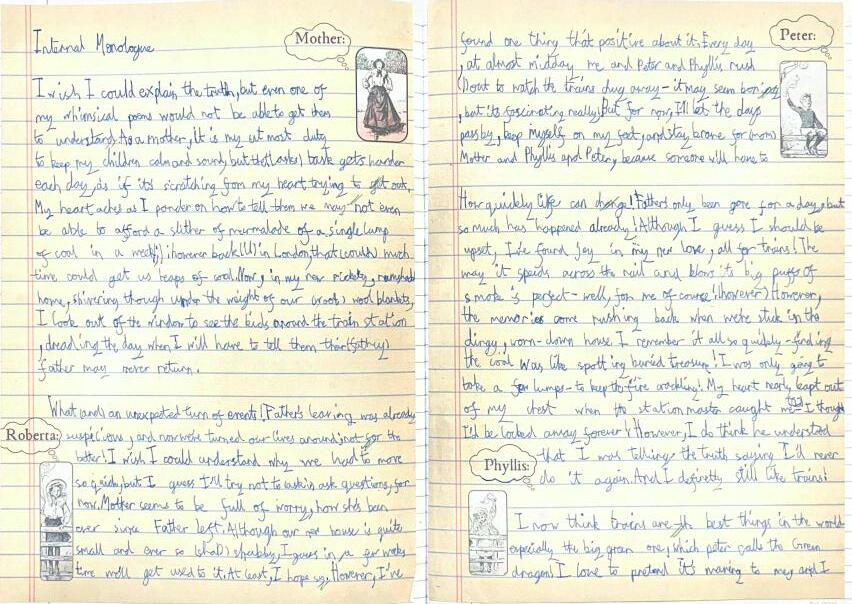 Internal Monologue
Mother:
I wish I could explain the truth, but even one of
my whimsical poems would not be able to get them
to understand. As a mother, it is my utmost duty
to keep my children calm and sound, but that (asks) task gets harder
each day, as if it's scratching from my heart trying to get out.
My heart aches as I ponder on how to tell them we may not even
be able to afford a slither of murmalade of a single lump
of coal in a week, however back in London, that (could) much
time could get us heaps of coal. Now, in my new rickety,
home, shivering though under the weight of our wool blankets,
I look out of the window to see the kids around the train station
, dreading the day when I will have to tell them that (sathey)
father may never return.
What (and) an unexpected turn of events! Father's leaving was already
Roberta:
suspicious, and now were turned our lives around, not for the
better! I wish I could understand why we had to move
so quickly, but I guess I'll try not to ask questions, for
now. Mother seems to be full of worry, how she's been
ever since Father left. Although our new house is quite
small and ever so (shab) shabby, I guess in a few weeks
time we'll get used to it. At least, I hope so. However, I've
Peter:
found one thing that positive about it. Every day
, at almost midday me and Peter and Phyllis rush
out to watch the trains chug away - it may seem boring
, but it's fascinating really! But for now, I'll let the days
pass by, keep myself on my feet, and stay brave for (mom)
Mother and Phyllis and Peter, because someone will have to
How quickely life can change! Father's only been gone for a day, but
so much has happened already! Although I guess I should be
upset, I've found joy in my new love, all for trains! The
way it speeds across the rail and blows its big puffs of
smoke is perfect - well, for me of course! (however) However,
the memories come rushing back when we're stuck in the
dingy, worn-down house. I remember it all so quickely - finding
the coal was like spotting buried treasure! I was only going to
take a few lumps - to keep the fire crackling! My heart nearly leapt out
of my chest when the station master caught me - I though
I'd be locked away forever! However, I do think he understood
Phyllis:
that I was telling the truth saying I'd never
do it again. And I definetly still like trains!
I now think trains are the best things in the world
especially the big green one, which peter calls the Green
dragon! I love to pretend it's to me, and I